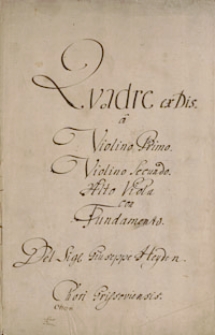 Quadre ex Dis.
â
Violino Primo.
Violino Secundo.
Alto Viola
con
Fundamento.
Del Sigl. Giuseppe Heydn.
Chori